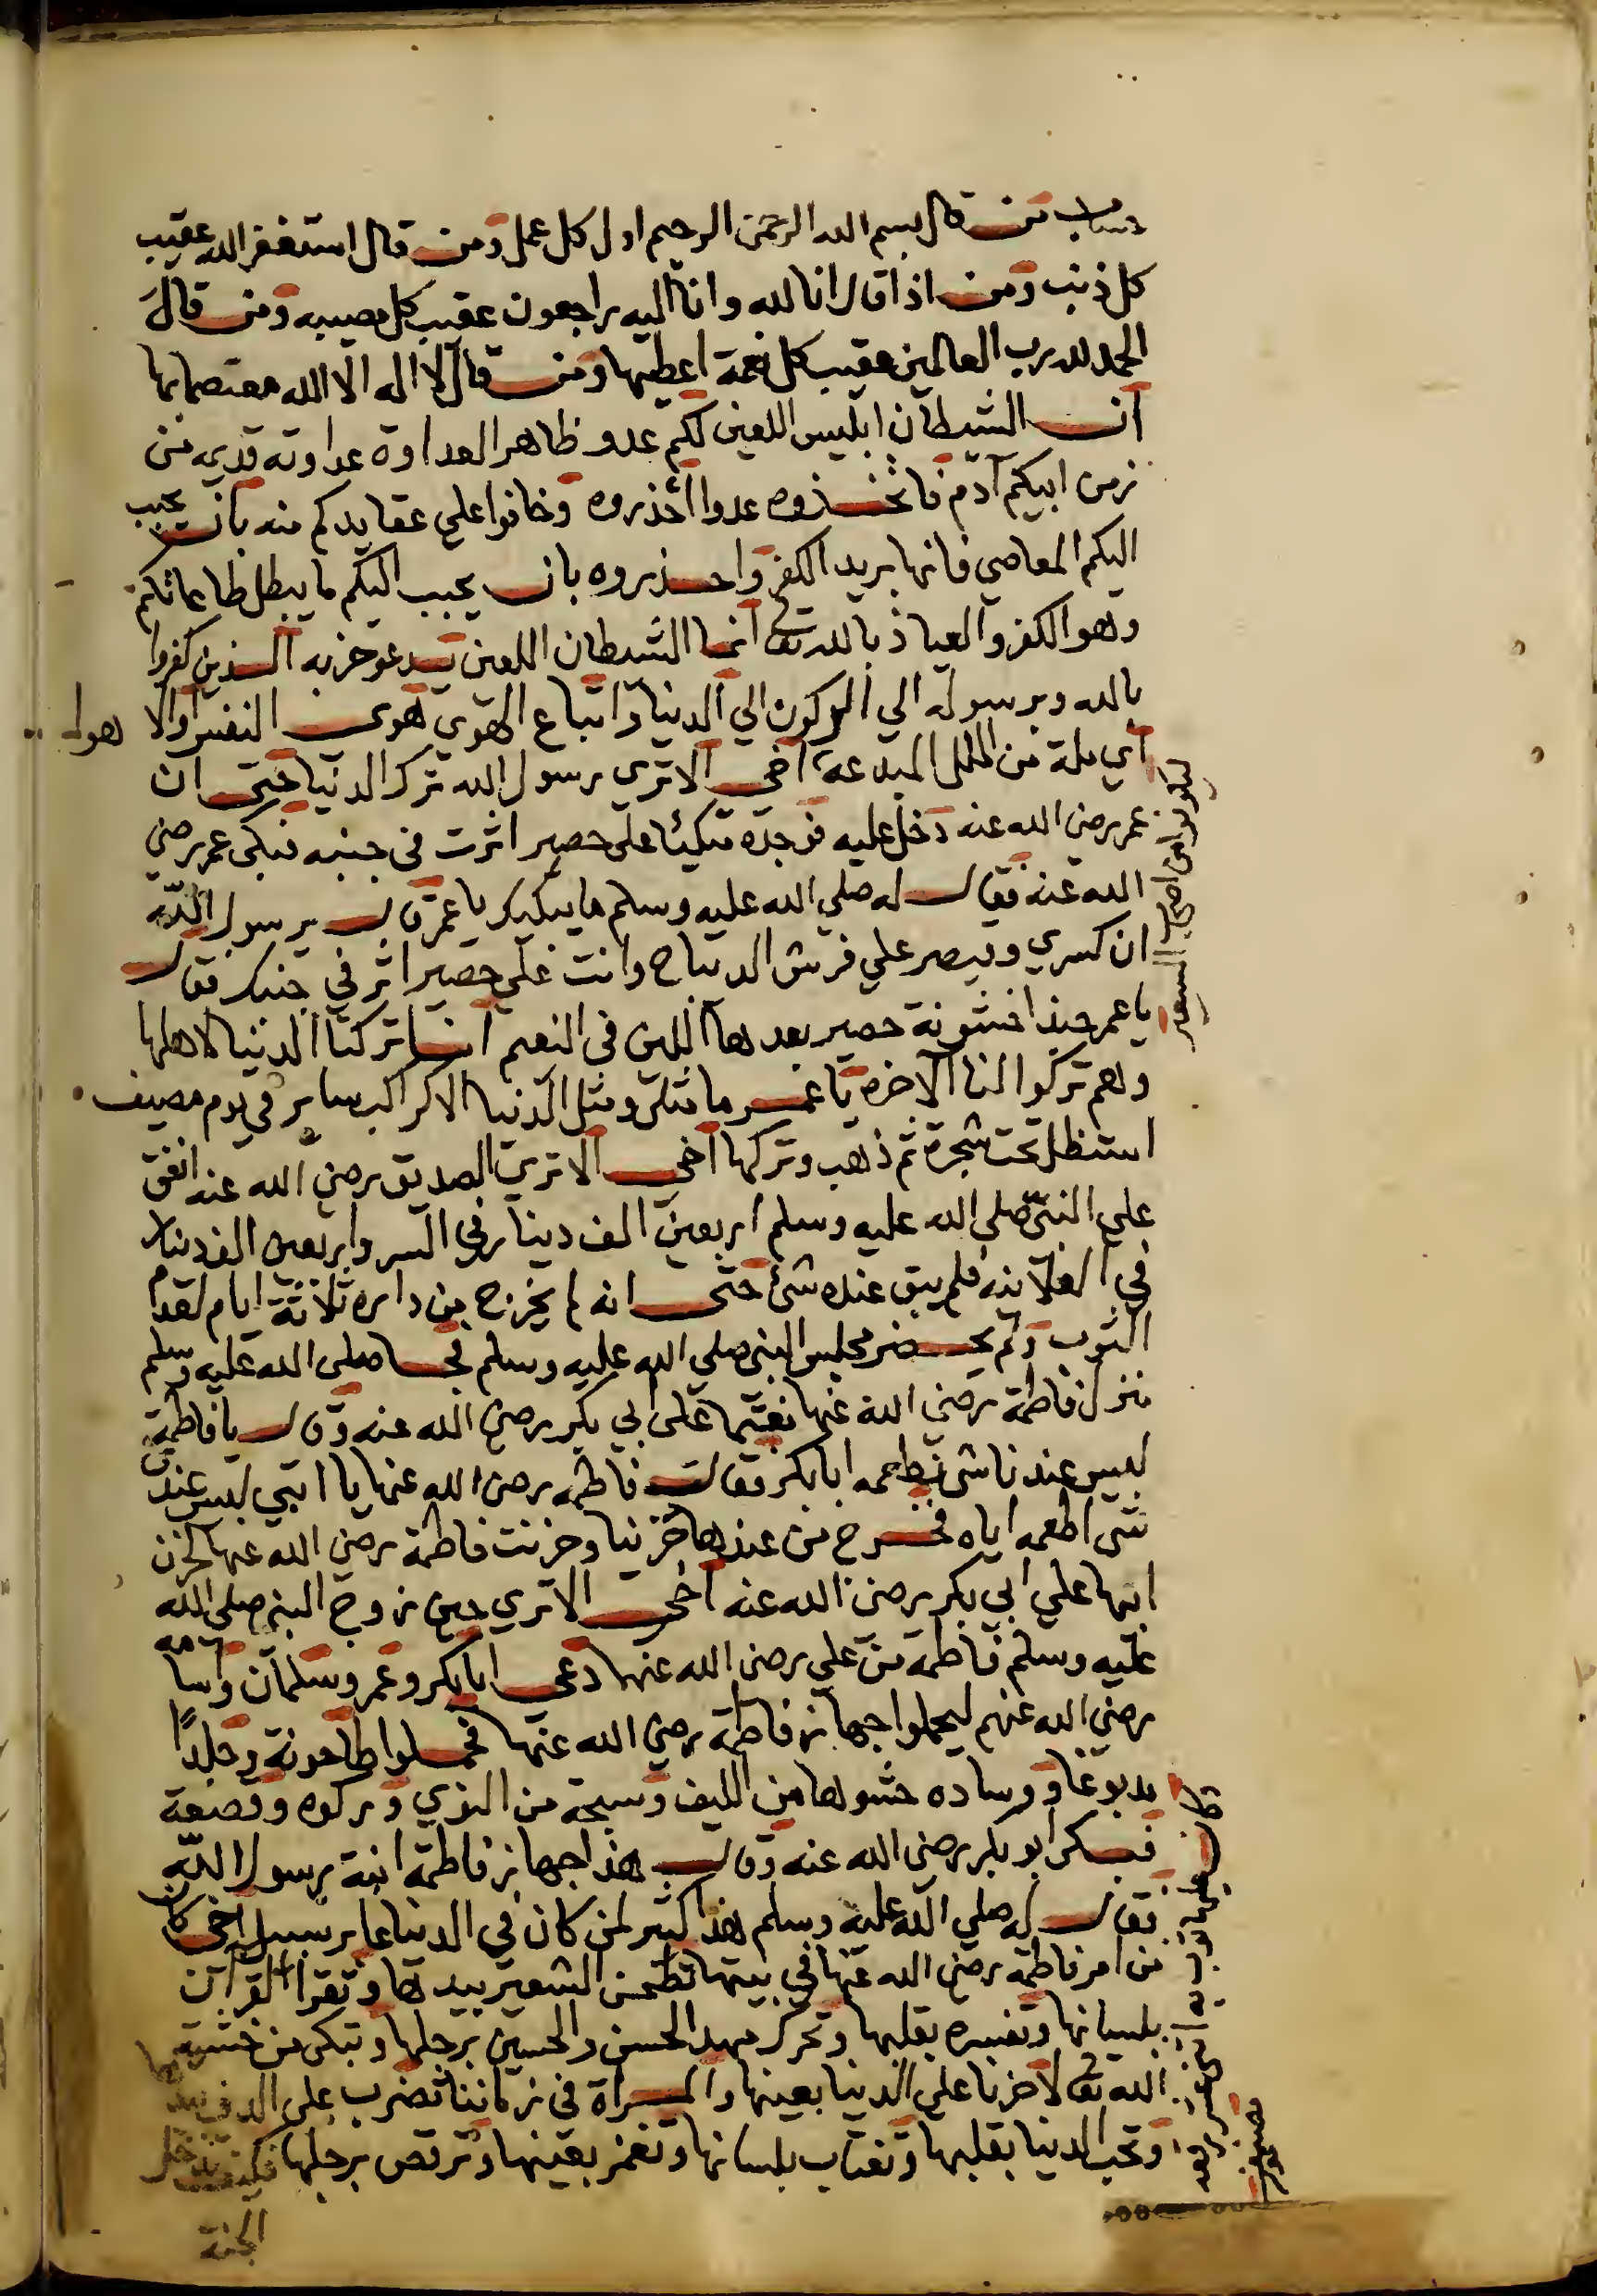 من قال بسم الله الرحمن الرحيم اول كل عمل ومن قال استغفر الله عقيب
كل ذنب ومن اذا قال انا لله وانا اليه راجعون عقيب كل مصيبه ومن قال
الحمد لله رب العالمين عقيب كل نعمة اعطيها ومن قال لا اله الا الله معتصما بها
ان الشيطان ابليس اللعين لكم عدو ظاهر العداوة عداوته قديمه من
زمن ابيكم آدم فاتخذوه عدوا احذروه وخافوا علي عقايدكم منه بان يحبب
اليكم المعاصي فانها بريد الكفر واحذروه بان يحبب اليكم ما يبطل طاعاتكم
وهو الكفر والعياذ بالله تعالى انما الشيطان اللعين يدعو حزبه الذين كفروا
بالله وبرسوله الي الركون الي الدنيا واتباع الهوي هوى النفس او الا هوا
اي ملة من الملل المبدعة اخى الا تري رسول الله ترك الدنيا حتى ان
عمر رضي الله عنه دخل عليه فوجده متكيئا على حصير اثرت في جنبه فبكى عمر رضي
الله عنه فقال له صلي الله عليه وسلم ما يبكيك يا عمر قال يرسول الله
ان كسري وقيصر علي فرش الديباج وانت على حصير اثر في جنبك فقال
يا عمر حبذا خشونة حصير بعدها اللين في النعيم انا تركنا الدنيا لاهلها
وهم تركوا لنا الاخره يا عمر ما مثلي ومثل الدنيا الا كراكب ساير في يوم مصيف
استظل تحت شجرة ثم ذهب وتركها اخى الا تري الصديق رضي الله عنه انفق
علي النبي صلي الله عليه وسلم اربعين الف دينار في السر واربعين الف دينار
في العلانيه فلم يبق عنده شئ حتى انه لم يخرج من داره ثلاثة ايام لعدم
الثوب ولم يحضر مجلس النبي صلي الله عليه وسلم فجا صلى الله عليه وسلم
منزل فاطمة رضي الله عنها مغتما على ابي بكر رضي الله عنه وقال يا فاطمة
ليس عندنا شي نطعمه ابا بكر فقالت فاطمه رضي الله عنها يا ابتي ليس عندي
شى اطعمه اياه فخرج من عندها حزينا وحزنت فاطمة رضي الله عنها لحزن
ابيها علي ابي بكر رضي الله عنه اخى الا تري حين زوج النبي صلى الله
عليه وسلم فاطمة من علي رضي الله عنها دعى ابا بكر وعمر وسلمان واسامه
رضي الله عنهم ليحملوا جهاز فاطمة رضي الله عنها فحملوا طاحونة وجلدًا
مدبوغا ووساده حشوها من الليف وسبحة من النوي وركوه وقصعة
فبكى ابو بكر رضي الله عنه وقال هذا جهاز فاطمة ابنة رسول الله
فقال له صلي الله عليه وسلم هذا كثير لمن كان في الدنيا عابر سبيل اخى كان
من امر فاطمة رضي الله عنها في بيتها تطحن الشعير بيدها وتقرأ القرآن
بلسانها وتفسره بقلبها وتحرك مهد الحسن والحسين برجلها وتبكي من خشية
الله تعالى لا حزنا على الدنيا بعينها والمرأة في زماننا تضرب على الدف بيدها
وتحب الدنيا بقلبها وتغتاب بلسانها وتغمز بعينها وترقص برجلها فكيف تدخل
الجنة
ليكونوا من اصحاب السعير